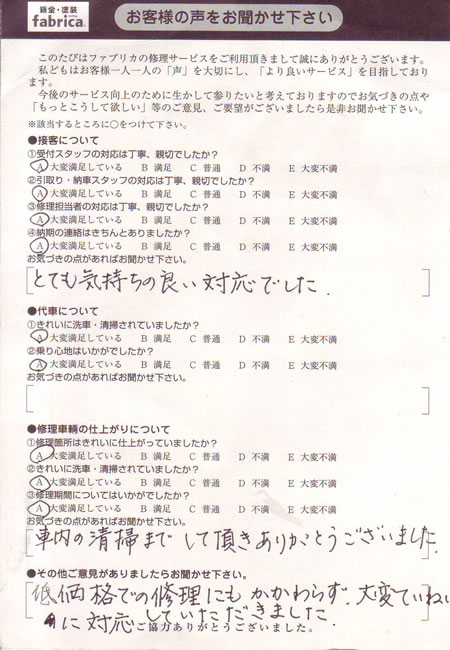 鈑金・塗装
fabrica
お客様の声をお聞かせ下さい
このたびはファブリカの修理サービスをご利用頂きまして誠にありがとうございます。
私どもはお客様一人一人の「声」を大切にし、「より良いサービス」を目指しており
ます。
今後のサービス向上のために生かして参りたいと考えておりますのでお気づきの点や
「もっとこうして欲しい」等のご意見、ご要望がございましたら是非お聞かせ下さい。
※該当するところに○をつけて下さい。
●接客について
①受付スタッフの対応は丁寧、親切でしたか？
A 大変満足している B 満足 C 普通 D 不満 E 大変不満
②引取り・納車スタッフの対応は丁寧、親切でしたか？
A 大変満足している B 満足 C 普通 D 不満 E 大変不満
③修理担当者の対応は丁寧、親切でしたか？
A 大変満足している B 満足 C 普通 D 不満 E 大変不満
④納期の連絡はきちんとありましたか？
A 大変満足している B 満足 C 普通 D 不満 E 大変不満
お気づきの点があればお聞かせ下さい。
とても気持ちの良い対応でした.
●代車について
①きれいに洗車・清掃されていましたか？
A 大変満足している B 満足 C 普通 D 不満 E 大変不満
②乗り心地はいかがでしたか？
A 大変満足している B 満足 C 普通 D 不満 E 大変不満
お気づきの点があればお聞かせ下さい。
●修理車輌の仕上がりについて
①修理箇所はきれいに仕上がっていましたか？
A 大変満足している B 満足 C 普通 D 不満 E 大変不満
②きれいに洗車・清掃されていましたか？
A 大変満足している B 満足 C 普通 D 不満 E 大変不満
③修理期間についてはいかがでしたか？
A 大変満足している B 満足 C 普通 D 不満 E 大変不満
お気づきの点があればお聞かせ下さい。
車内の清掃まで して頂きありがとうございました.
●その他ご意見がありましたらお聞かせ下さい。
低価格での修理にもかかわらず.大変ていねい
に対応していただきました.
ご協力ありがとうございました。